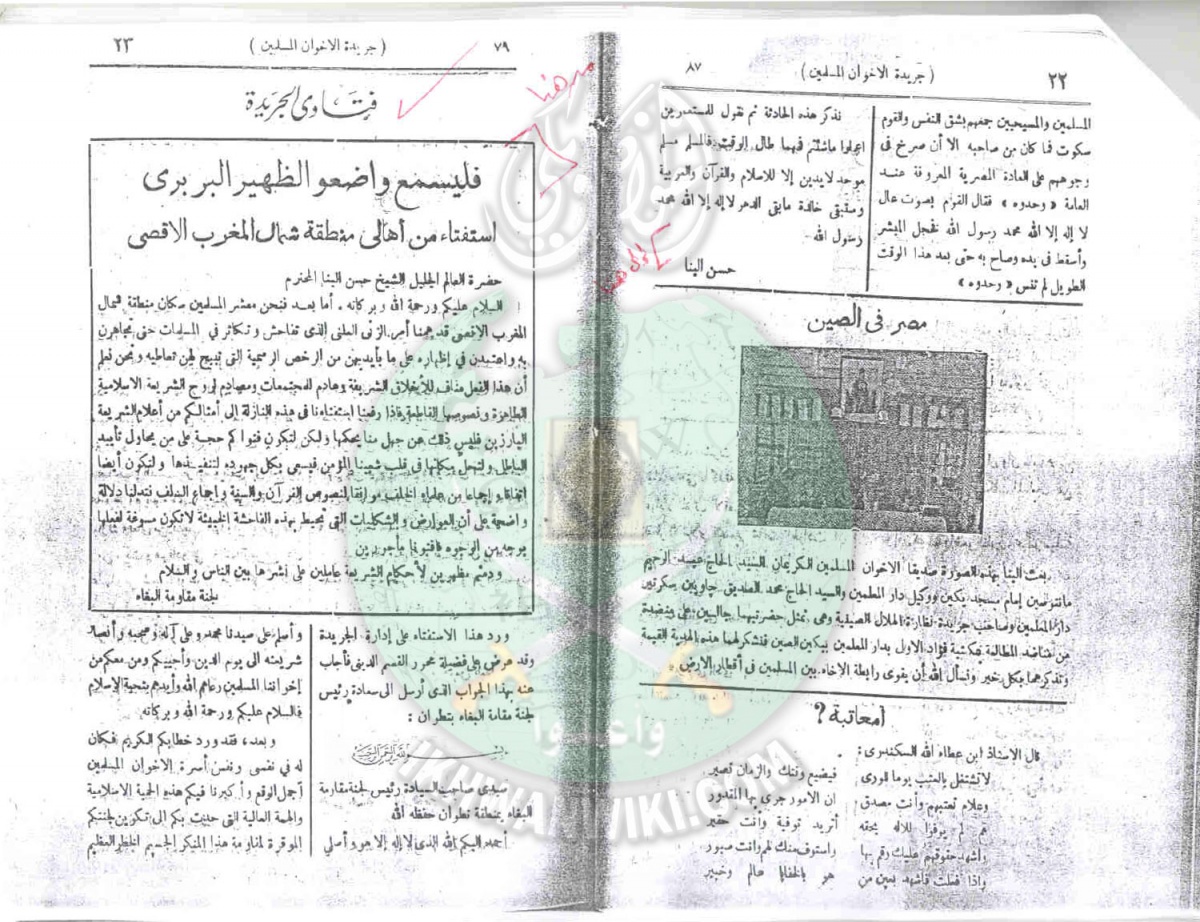 ٢٢
( جريدة الاخوان المسلمين )
٨٧
المسلمين والمسيحيين جمعهم بشق النفس والقوم
سكوت فما كان من صاحبه الا أن صرخ فى
وجوههم على العادة المصرية المعروفة عنـد
العامة « وحدوه » فقال القوم بصوت عال
لا إله إلا الله محمد رسول الله فخجل المبشر
وأسقط فى يده وصاح به حتى بعد هذا الوقت
الطويل لم تنس « وحدوه »
نذكر هذه الحادثة ثم نقول للمستعمرين
اعملوا ماشئتم فمهما طال الوقت فالمسلم مسلم
موحد لايدين إلا للاسلام والقرآن والعربية
وستبقى خالدة مابقى الدهر لا إله إلا الله محمد
رسول الله
حسن البنا
مصر فى الصين
بعث الينا بهذه الصورة صديقا الاخوان المسلمين الكريمان السيد الحاج عبد الرحيم
إمام مسجد بكين ووكيل دار المعلمين والسيد الحاج محمد الصديق سكرتير
دار المعلمين وصاحب جريدة نظارة الهلال الصينية وهى تمثل حضرتيهما جالسين على منضدة
من مناضد المطالعة بمكتبة فؤاد الاول بدار المعلمين ببكين الصين فنشكر لهما هذه الهدية القيمة
ونذكرهما بكل خير ونسأل الله أن يقوى رابطة الاخاء بين المسلمين فى أقطار الارض
أمعاتبة ؟
قال الاستاذ ابن عطاء الله السكندرى :
لا تشتغل بالعتب يوما للورى
فيضيع وقتك والزمان قصير
وعلام تعتبهم وأنت مصدق
ان الامور جرى بها المقدور
هم لم يوفوا للاله بحقه
أتريد توفية وأنت حقير
واشهد حقوقهم عليك وقم بها
واستوف منك لهم وأنت صبور
واذا فعلت فاشهد بعين من
هو بالخفايا عالم وخبير
٧٩
( جريدة الاخوان المسلمين )
٢٣
من هنا
فتاوى الجريدة
فليسمع واضعو الظهير البربرى
استفتاء من أهالى منطقة شمال المغرب الاقصى
حضرة العالم الجليل الشيخ حسن البنا المحترم
السلام عليكم ورحمة الله وبركاته . أما بعد فنحن معشر المسلمين سكان منطقة شمال
المغرب الاقصى قد همنا أمر الزنى العلنى الذى تفاحش وتكاثر في المسلمات حتى تجاهرن
به واعتمدن في إظهاره على ما بأيديهن من الرخص الرسمية التى تبيح لهن تعاطيه ونحن نعلم
أن هذا الفعل مناف للأخلاق الشريفة وهادم للمجتمعات ومصادم لروح الشريعة الاسلامية
الطاهرة ونصوصها القاطعة فاذا رفعنا استفتاءنا في هذه النازلة إلى أمثالكم من أعلام الشريعة
البارزين فليس ذلك عن جهل منا بحكمها ولكن لتكون فتواكم حجة على من يحاول تأييد
الباطل ولتحل مكانها في قلب شعبنا المؤمن فيسعى بكل جهوده لتنفيذها ولتكون أيضا
اتفاقا وإجماعا من علماء الخلف موافقا لنصوص القرآن والسنة وإجماع السلف فتدلنا دلالة
واضحة على أن العوارض والشكليات التى تحيط بهذه الفاحشة الخبيثة لاتكون مسوغة لفعلها
بوجه من الوجوه فأفتونا مأجورين
ودمتم مظهرين لأحكام الشريعة عاملين على نشرها بين الناس والسلام
لجنة مقاومة البغاء
ورد هذا الاستفتاء على إدارة الجريدة
وقد عرض على فضيلة محرر القسم الدينى فأجاب
عنه بهذا الجواب الذى أرسل الى سعادة رئيس
لجنة مقامة البغاء بتطوان :
بسم الله الرحمن الرحيم
سيدى صاحب السيادة رئيس لجنة مقاومة
البغاء بمنطقة تطوان حفظه الله
أحمد اليكم الله الذى لا إله إلا هو وأصلى
وأسلم على سيدنا محمد وعلى آله وصحبه وأنصار
شريعته الى يوم الدين وأحييكم ومن معكم من
إخواننا المسلمين رعاهم الله وأيدهم بتحية الاسلام
فالسلام عليكم ورحمة الله وبركاته
وبعد ، فقد ورد خطابكم الكريم فكان
له في نفسى ونفس أسرة الاخوان المسلمين
أجمل الوقع وأكبرنا فيكم هذه الحمية الاسلامية
والهمة العالية التى حدت بكم الى تكوين لجنتكم
الموقرة لمقاومة هذا المنكر الجسيم الخطر العظيم
وأعدوا
IKHWANWIKI.COM